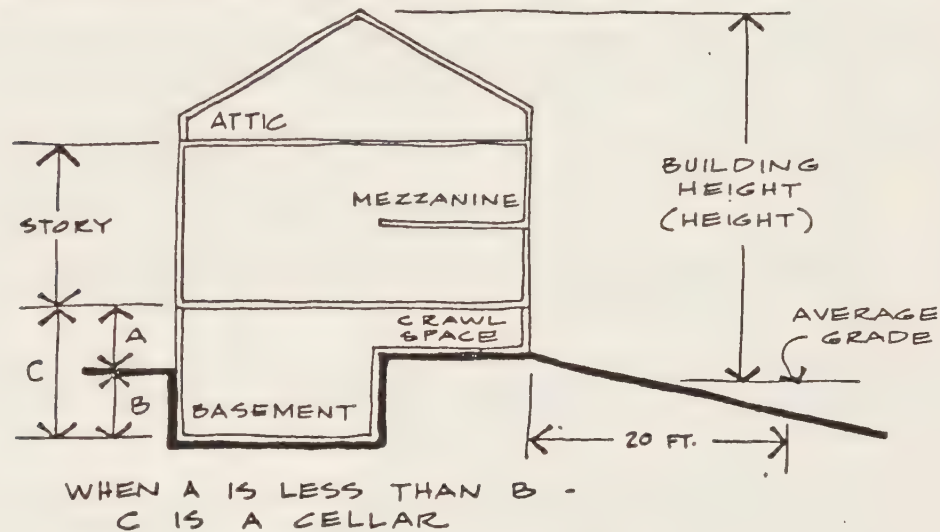 ATTIC
MEZZANINE
STORY
BUILDING
HEIGHT
(HEIGHT)
CRAWL
SPACE
A
AVERAGE
GRADE
C
B
BASEMENT
20 FT.
WHEN A IS LESS THAN B -
C IS A CELLAR